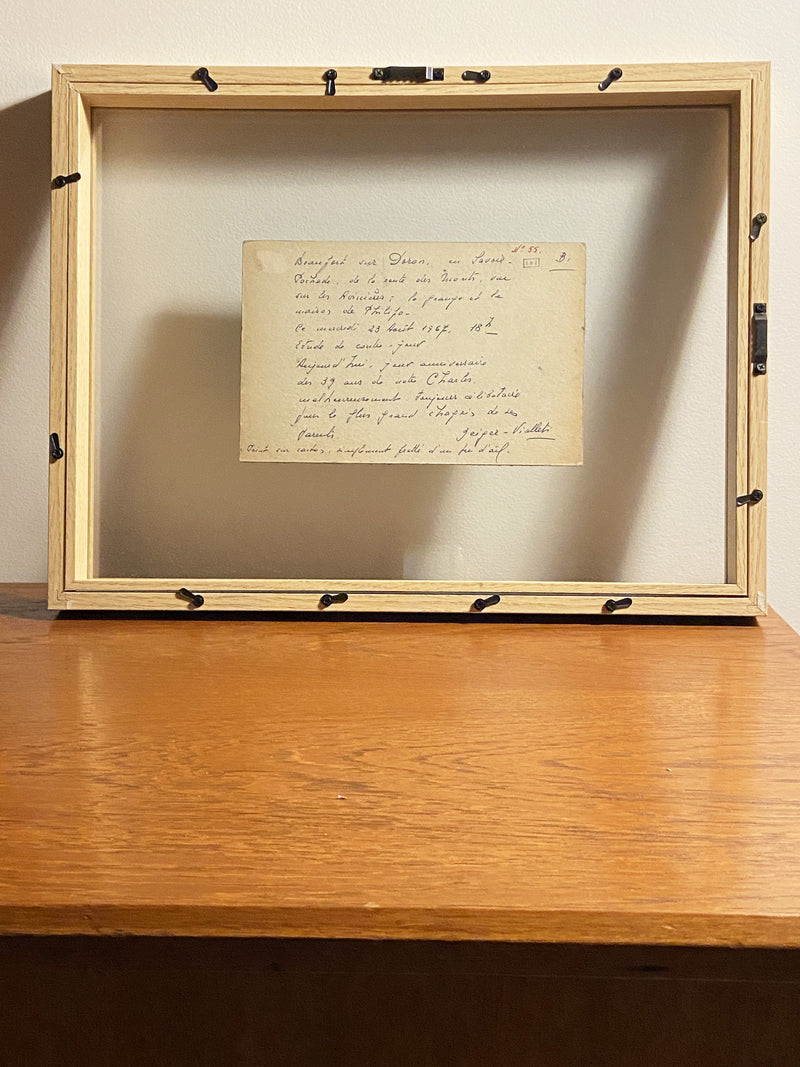 N° 55.
Beaufort sur Doron, en Savoie. B.
Pochade, de la route des Monts, vue
sur les ; la grange et la
maison de
Ce mercredi 23 Août 1967, 18 h
Etude de contre-jour
Aujourd'hui, jour anniversaire
des 39 ans de notre Charles,
malheureusement toujours célibataire
pour le plus grand chagrin de ses
parents. Geiger-Viallet
Peint sur carton, simplement frotté d'un peu d'ail.